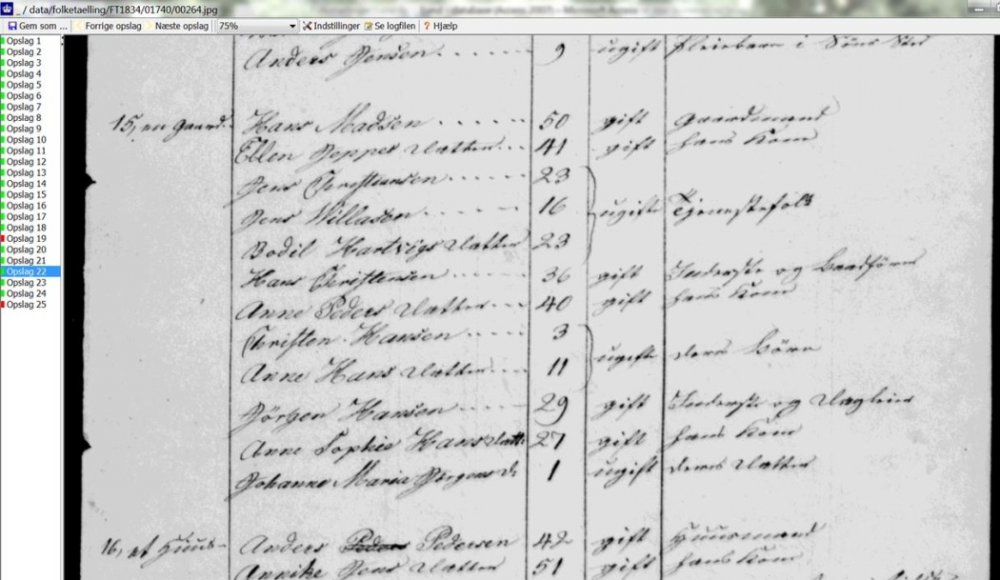 _ / data/folketaelling/FT1834/01740/00264.jpg
Gem som ... Forrige opslag Næste opslag 75% Indstillinger Se logfilen ? Hjælp
Opslag 1
Opslag 2
Opslag 3
Opslag 4
Opslag 5
Opslag 6
Opslag 7
Opslag 8
Opslag 9
Opslag 10
Opslag 11
Opslag 12
Opslag 13
Opslag 14
Opslag 15
Opslag 16
Opslag 17
Opslag 18
Opslag 19
Opslag 20
Opslag 21
Opslag 22
Opslag 23
Opslag 24
Opslag 25
Anders Jensen 9 ugift Pleiebarn i
15, en Gaard Hans Madsen 50 gift Gaardmand
Ellen Jeppes Datter 41 gift hans Kone
Jens Christensen 23
Jens Willasen 16 ugifte Tjenestefolk
Bodil Hartvigs Datter 23
Hans Christensen 36 gift Inderste og
Anne Peders Datter 40 gift hans Kone
Christen Hansen 3
ugifte deres Börn
Anne Hans Datter 11
Jörgen Hansen 29 gift Inderste og Dagleier
Anne Sophie Hans Datter 27 gift hans Kone
Johanne Maria Jörgens D. 1 ugift deres Datter
16, et Huus Anders Pedersen 42 gift Huusmand
Annike Jens Datter 51 gift hans Kone